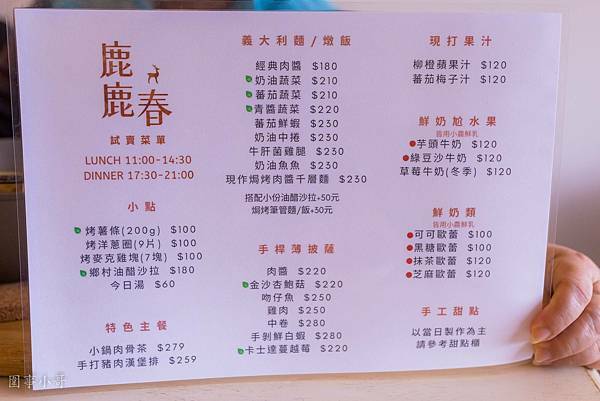 鹿鹿春
試賣菜單
LUNCH 11:00-14:30
DINNER 17:30-21:00
小點
烤薯條(200g) $100
烤洋蔥圈(9片) $100
烤麥克雞塊(7塊) $100
鄉村油醋沙拉 $180
今日湯 $60
特色主餐
小鍋肉骨茶 $279
手打豬肉漢堡排 $259
義大利麵/燉飯
經典肉醬 $180
奶油蔬菜 $210
蕃茄蔬菜 $210
青醬蔬菜 $220
蕃茄鮮蝦 $230
奶油中捲 $230
牛肝菌雞腿 $230
奶油魚魚 $230
現作焗烤肉醬千層麵 $230
搭配小份油醋沙拉+50元
焗烤筆管麵/飯+30元
手桿薄披薩
肉醬 $220
金沙杏鮑菇 $220
吻仔魚 $250
雞肉 $250
中卷 $280
手剝鮮白蝦 $280
卡士達蔓越莓 $220
現打果汁
柳橙蘋果汁 $120
蕃茄梅子汁 $120
鮮奶尬水果
皆用小農鮮乳
芋頭牛奶 $120
綠豆沙牛奶 $120
草莓牛奶(冬季) $120
鮮奶類
皆用小農鮮乳
可可歐蕾 $100
黑糖歐蕾 $100
抹茶歐蕾 $120
芝麻歐蕾 $120
手工甜點
以當日製作為主
請參考甜點櫃